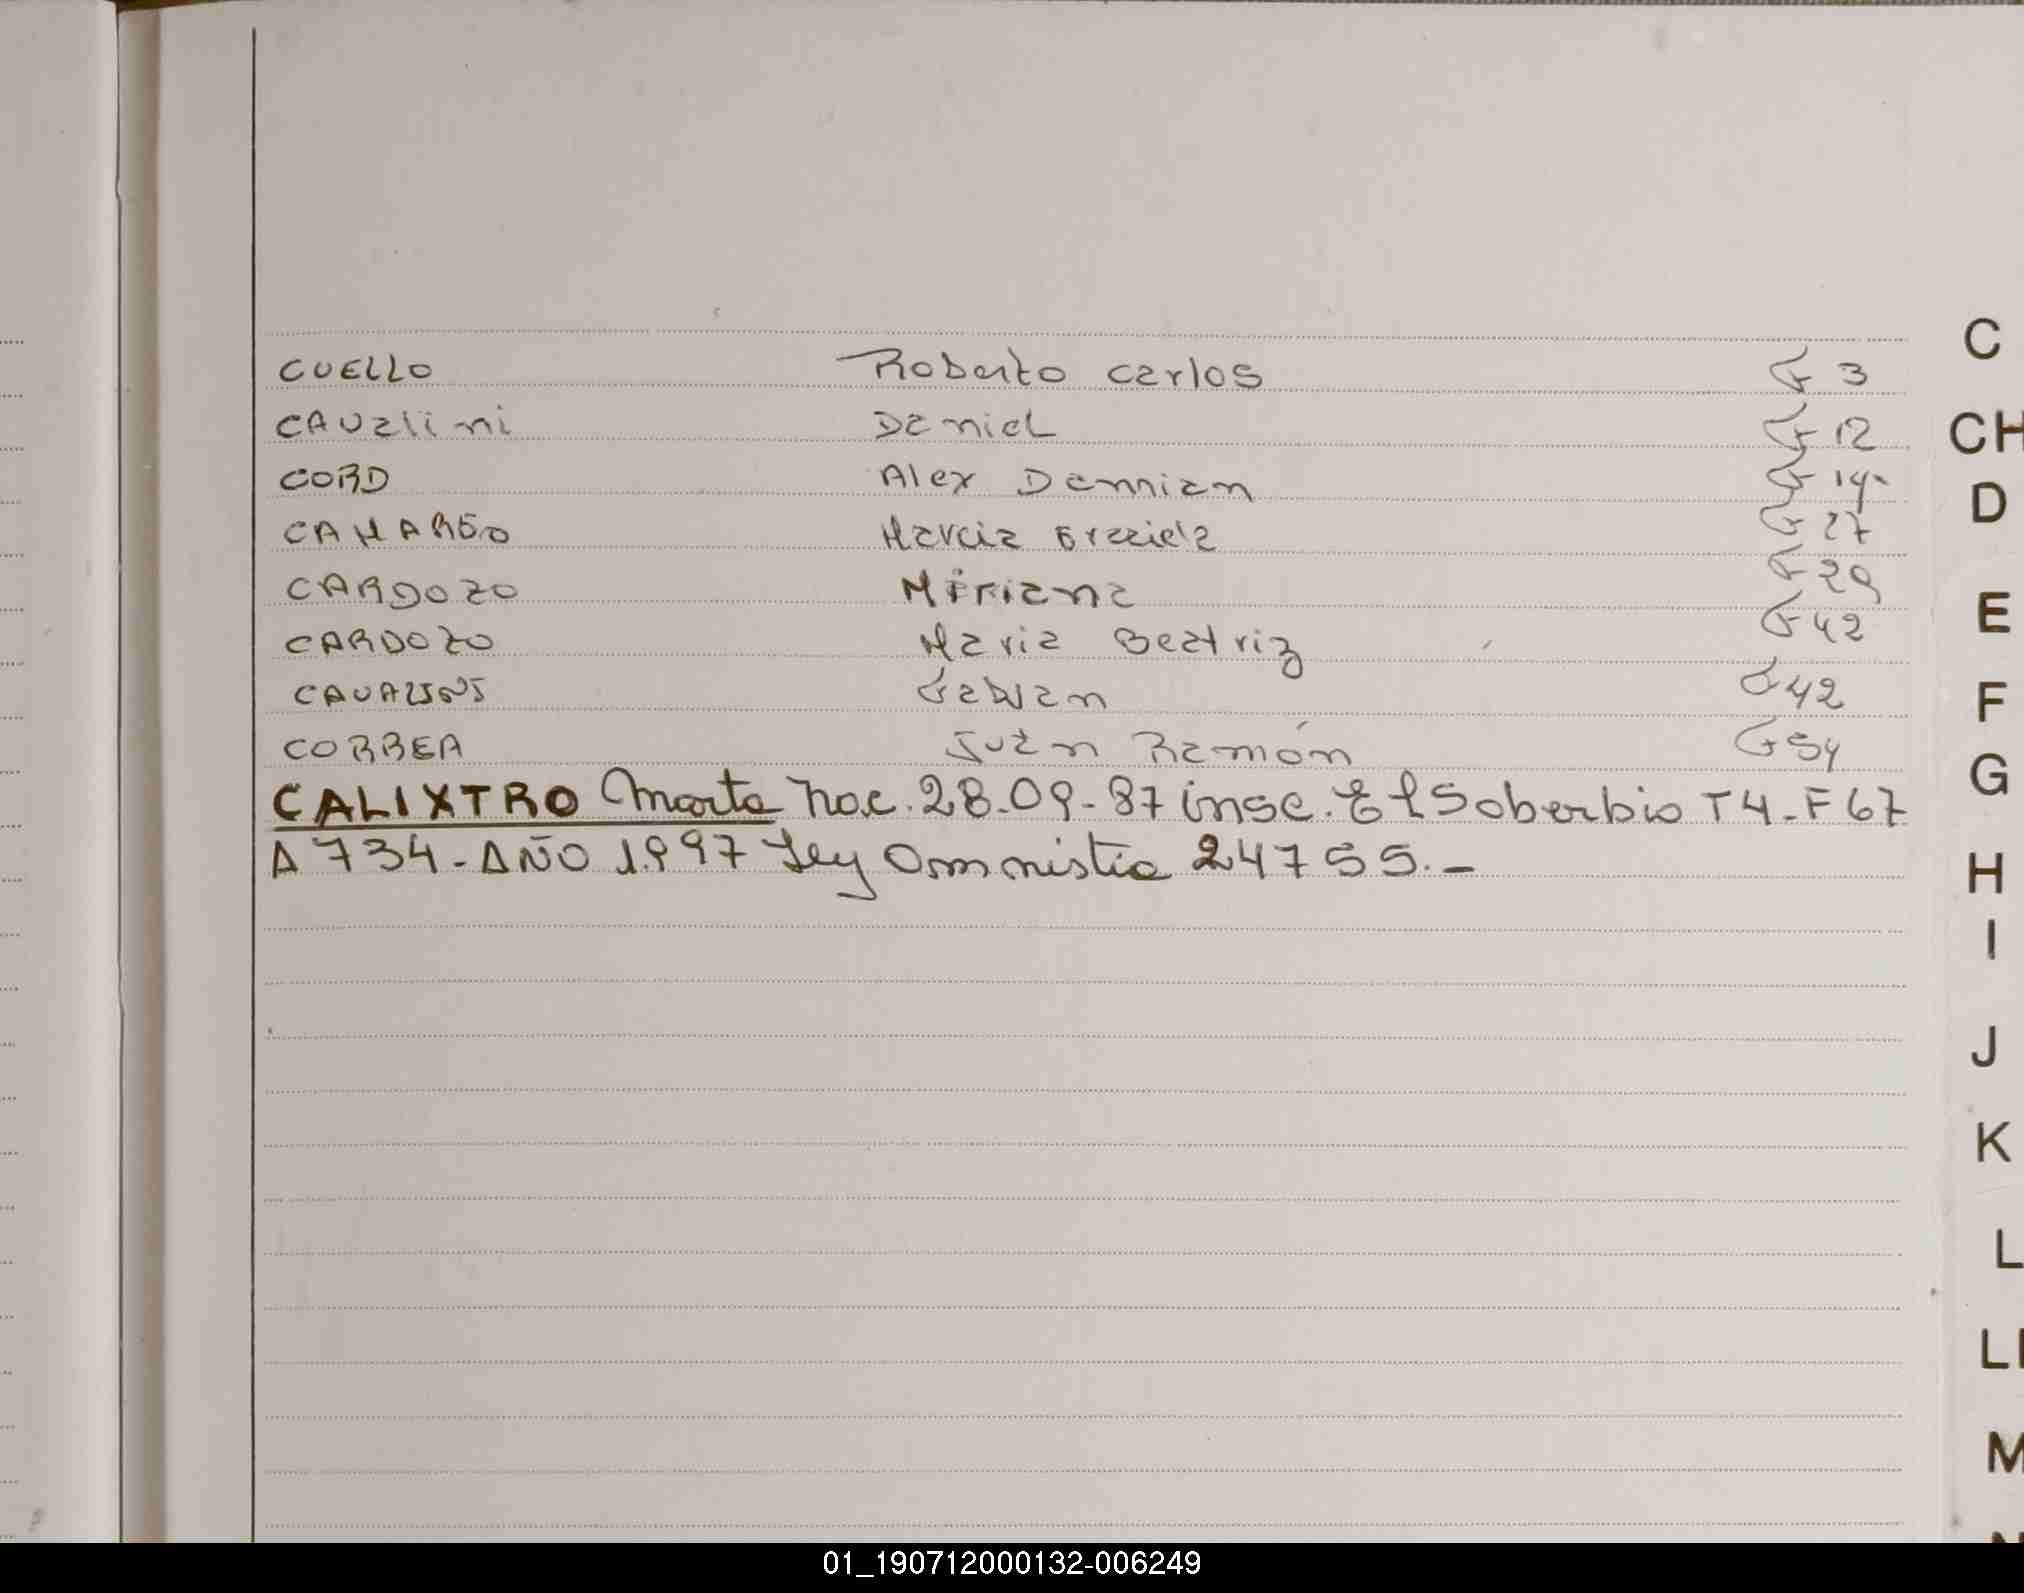 CUELLO Roberto Carlos F 3
CAValini Daniel F 12
CORD Alex Damian F 14
CAMARGO Marcia Graciela F 27
CARDOZO Miriana F 29
CARDOZO Maria Beatriz F 42
CAVALINI Fabian F 42
CORREA Juan Ramón F 54
CALIXTRO Marta Nac. 28-09-87 insc. El Soberbio T4-F67
A 734-AÑO 1997 Ley Amnistia 24755.-
C
CH
D
E
F
G
H
I
J
K
L
M
01_190712000132-006249